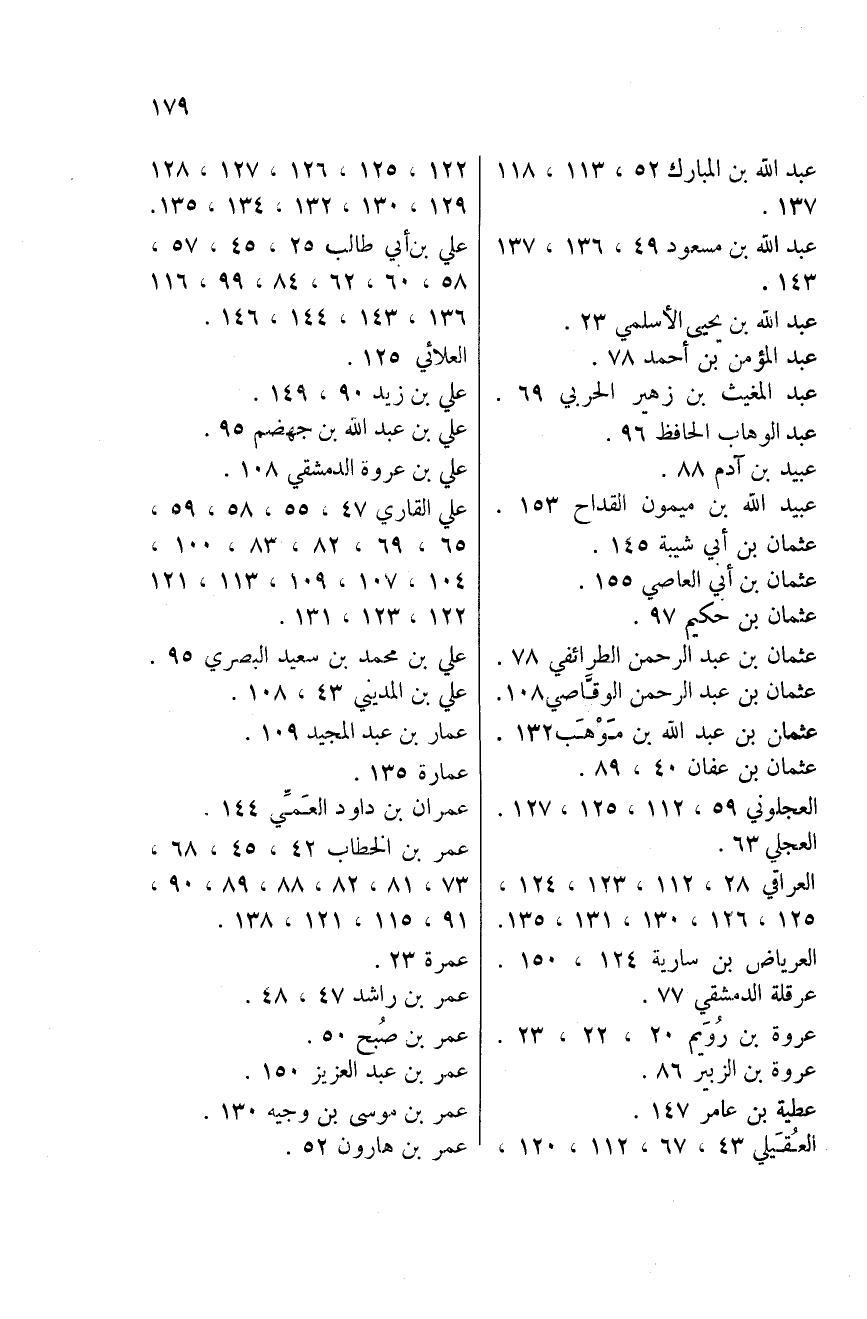 ١٧٩
عبد الله بن المبارك ٥٢ ، ١١٣ ، ١١٨
١٣٧ .
عبد الله بن مسعود ٤٩ ، ١٣٦ ، ١٣٧
١٤٣ .
عبد الله بن يحيى الأسلمي ٢٣ .
عبد المؤمن بن أحمد ٧٨ .
عبد المغيث بن زهير الحربي ٦٩ .
عبد الوهاب الحافظ ٩٦ .
عبيد بن آدم ٨٨ .
عبيد الله بن ميمون القداح ١٥٣ .
عثمان بن أبي شيبة ١٤٥ .
عثمان بن أبي العاصي ١٥٥ .
عثمان بن حكيم ٩٧ .
عثمان بن عبد الرحمن الطرائفي ٧٨ .
عثمان بن عبد الرحمن الوقَّاصي١٠٨.
عثمان بن عبد الله بن مَوْهَب١٣٢ .
عثمان بن عفان ٤٠ ، ٨٩ .
العجلوني ٥٩ ، ١١٢ ، ١٢٥ ، ١٢٧ .
العجلي ٦٣ .
العراقي ٢٨ ، ١١٢ ، ١٢٣ ، ١٢٤ ،
١٢٥ ، ١٢٦ ، ١٣٠ ، ١٣١ ، ١٣٥.
العرباض بن سارية ١٢٤ ، ١٥٠ .
عرقلة الدمشقي ٧٧ .
عروة بن رُوَيم ٢٠ ، ٢٢ ، ٢٣ .
عروة بن الزبير ٨٦ .
عطية بن عامر ١٤٧ .
العُقَيلي ٤٣ ، ٦٧ ، ١١٢ ، ١٢٠ ،
١٢٢ ، ١٢٥ ، ١٢٦ ، ١٢٧ ، ١٢٨
١٢٩ ، ١٣٠ ، ١٣٢ ، ١٣٤ ، ١٣٥.
علي بن أبي طالب ٢٥ ، ٤٥ ، ٥٧ ،
٥٨ ، ٦٠ ، ٦٢ ، ٨٤ ، ٩٩ ، ١١٦
١٣٦ ، ١٤٣ ، ١٤٤ ، ١٤٦ .
العلائي ١٢٥ .
علي بن زيد ٩٠ ، ١٤٩ .
علي بن عبد الله بن جهضم ٩٥ .
علي بن عروة الدمشقي ١٠٨ .
علي القاري ٤٧ ، ٥٥ ، ٥٨ ، ٥٩ ،
٦٥ ، ٦٩ ، ٨٢ ، ٨٣ ، ١٠٠ ،
١٠٤ ، ١٠٧ ، ١٠٩ ، ١١٣ ، ١٢١
١٢٢ ، ١٢٣ ، ١٣١ .
علي بن محمد بن سعيد البصري ٩٥ .
علي بن المديني ٤٣ ، ١٠٨ .
عمار بن عبد المجيد ١٠٩ .
عمارة ١٣٥ .
عمران بن داود العَمِّي ١٤٤ .
عمر بن الخطاب ٤٢ ، ٤٥ ، ٦٨ ،
٧٣ ، ٨١ ، ٨٢ ، ٨٨ ، ٨٩ ، ٩٠ ،
٩١ ، ١١٥ ، ١٢١ ، ١٣٨ .
عمرة ٢٣ .
عمر بن راشد ٤٧ ، ٤٨ .
عمر بن صُبح ٥٠ .
عمر بن عبد العزيز ١٥٠ .
عمر بن موسى بن وجيه ١٣٠ .
عمر بن هارون ٥٢ .